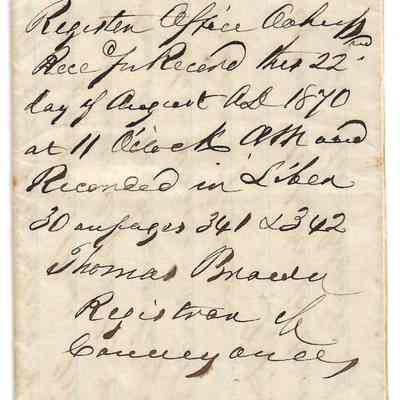 Register Office Oahu
Recd for Record this 22nd
day of August AD 1870
at 11 O'Clock AM and
Recorded in Liber
30 on pages 341 & 342
Thomas Brown
Registrar of
Conveyances